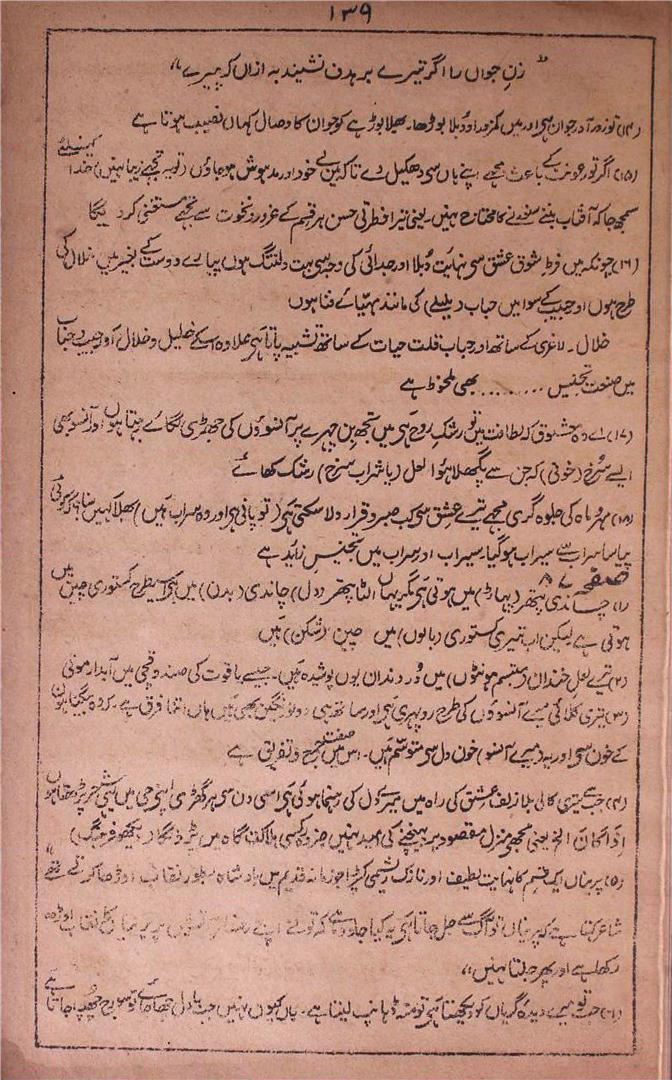 ۱۳۹
"زنِ جواں را اگر تیرے بر ہدف نشیند بہ ازاں کہ پیرے"
(۱۴) تو زورآور جوان ہی اور میں کمزور اور دُبلا بوڑھا۔ بھلا بوڑہے کو جوان کا وصال کہاں نصیب ہوتا ہے
(۱۵) اگر تو رعونت کے باعث مجھے اپنے ہاں سی دھکیل دے تاکہ میں بے خود اور مدہوش ہو جاؤں (تو یہ تجھے زیبا نہیں) خدا کیلئے
سمجھ جا کہ آفتاب بننے سنورنے کا محتاج نہیں۔ یعنی تیرا فطرتی حسن ہر قسم کے غرور و نخوت سے تجھے مستغنی کر دیگا
(۱۶) چونکہ میں فرطِ شوق عشق سی نہایت دُبلا اور جدائی کی وجہ سی بہت دلتنگ ہوں پیارے دوست کے بغیر میں خلال کی
طرح ہوں اور حبیب کے سوا میں حباب (بلبلے) کی مانند مہیّائے فنا ہوں
خلال۔ لاغری کے ساتھ اور حباب قلت حیات کے ساتھ تشبیہ پاتا ہی علاوہ اسکے خلیل و خلال اور حبیب و حباب
میں صنعت تجنیس ......... بھی ملحوظ ہے
(۱۷) اے وہ معشوق کہ لطافت میں تو رشکِ روح ہی میں تجھ بن چہرے پر آنسوؤں کی جھڑی لگائے رہتا ہوں اور آنسو بھی
ایسے سُرخ (خونی) کہ جن سے پگھلا ہوا لعل (یا شراب سرخ) رشک کھائے
(۱۸) مہر و ماہ کی جلوہ گری مجھے تیرے عشق سی کب صبر و قرار دلا سکتی ہی (تو پانی ہی اور وہ سراب ہیں) بھلا کہیں سنا ہی کہ کوئی
پیاسا سراب سے سیراب ہو گیا۔ سیراب اور سراب میں تجنیس زاید ہے
صفحہ ۷۸
(۱) چاندی پتھر (پہاڑ) میں ہوتی ہی مگر یہاں الٹا پتھر (دل) چاندی (بدن) میں ہی اسیطرح کستوری چین میں
ہوتی ہے لیکن اب تیری کستوری (بالوں) میں چین (شکن) ہیں
(۲) تیرے لعل خنداں (متبسم ہونٹوں) میں دُر دنداں یوں پوشیدہ ہیں۔ جیسے یاقوت کی صندوقچی میں آبدار موتی
(۳) تیری کلائی میرے آنسوؤں کی طرح روپہری ہی اور ساتھ ہی دونو رنگین بھی ہیں ہاں اتنا فرق ہے۔ کہ وہ بیگناہوں
کے خون سی اور یہ (میرے آنسو) خون دل سی متوسم ہیں۔ اس میں صنعت جمع و تفریق ہے
(۴) جب سے تیری کالی بلا زلف عشق کی راہ میں میرے دل کی رہنما ہوئی ہی اسی دن سی ہر گھڑی اپنی جی میں یہی شعر پڑھتا ہوں
اِذَا کَانَ الخ یعنی مجھی منزل مقصود پر پہنچنے کی امید نہیں ضرور کسی ہلاکت گاہ میں پڑونگا (دیکھو فرہنگ)
(۵) پرنیاں ایک قسم کا نہایت لطیف اور نازک ریشمی کپڑا جو زمانہ قدیم میں بادشاہ بطور نقاب اوڑھا کرتے تھے"
شاعر کہتا ہے کہ پرنیاں تو آگ سے جل جاتا ہی یہ کیا جادو ہے کہ تو نے اپنے پر پرنیاں کا نقاب اوڑھ
رکھا ہے اور پھر جلتا نہیں"
(۶) جب تو میرے دیدۂ گریاں کو دیکھتا ہی تو منہ ڈہانپ لیتا ہے۔ ہاں کیوں نہیں جب بادل چھا جائے تو سورج چھپ جاتا ہے